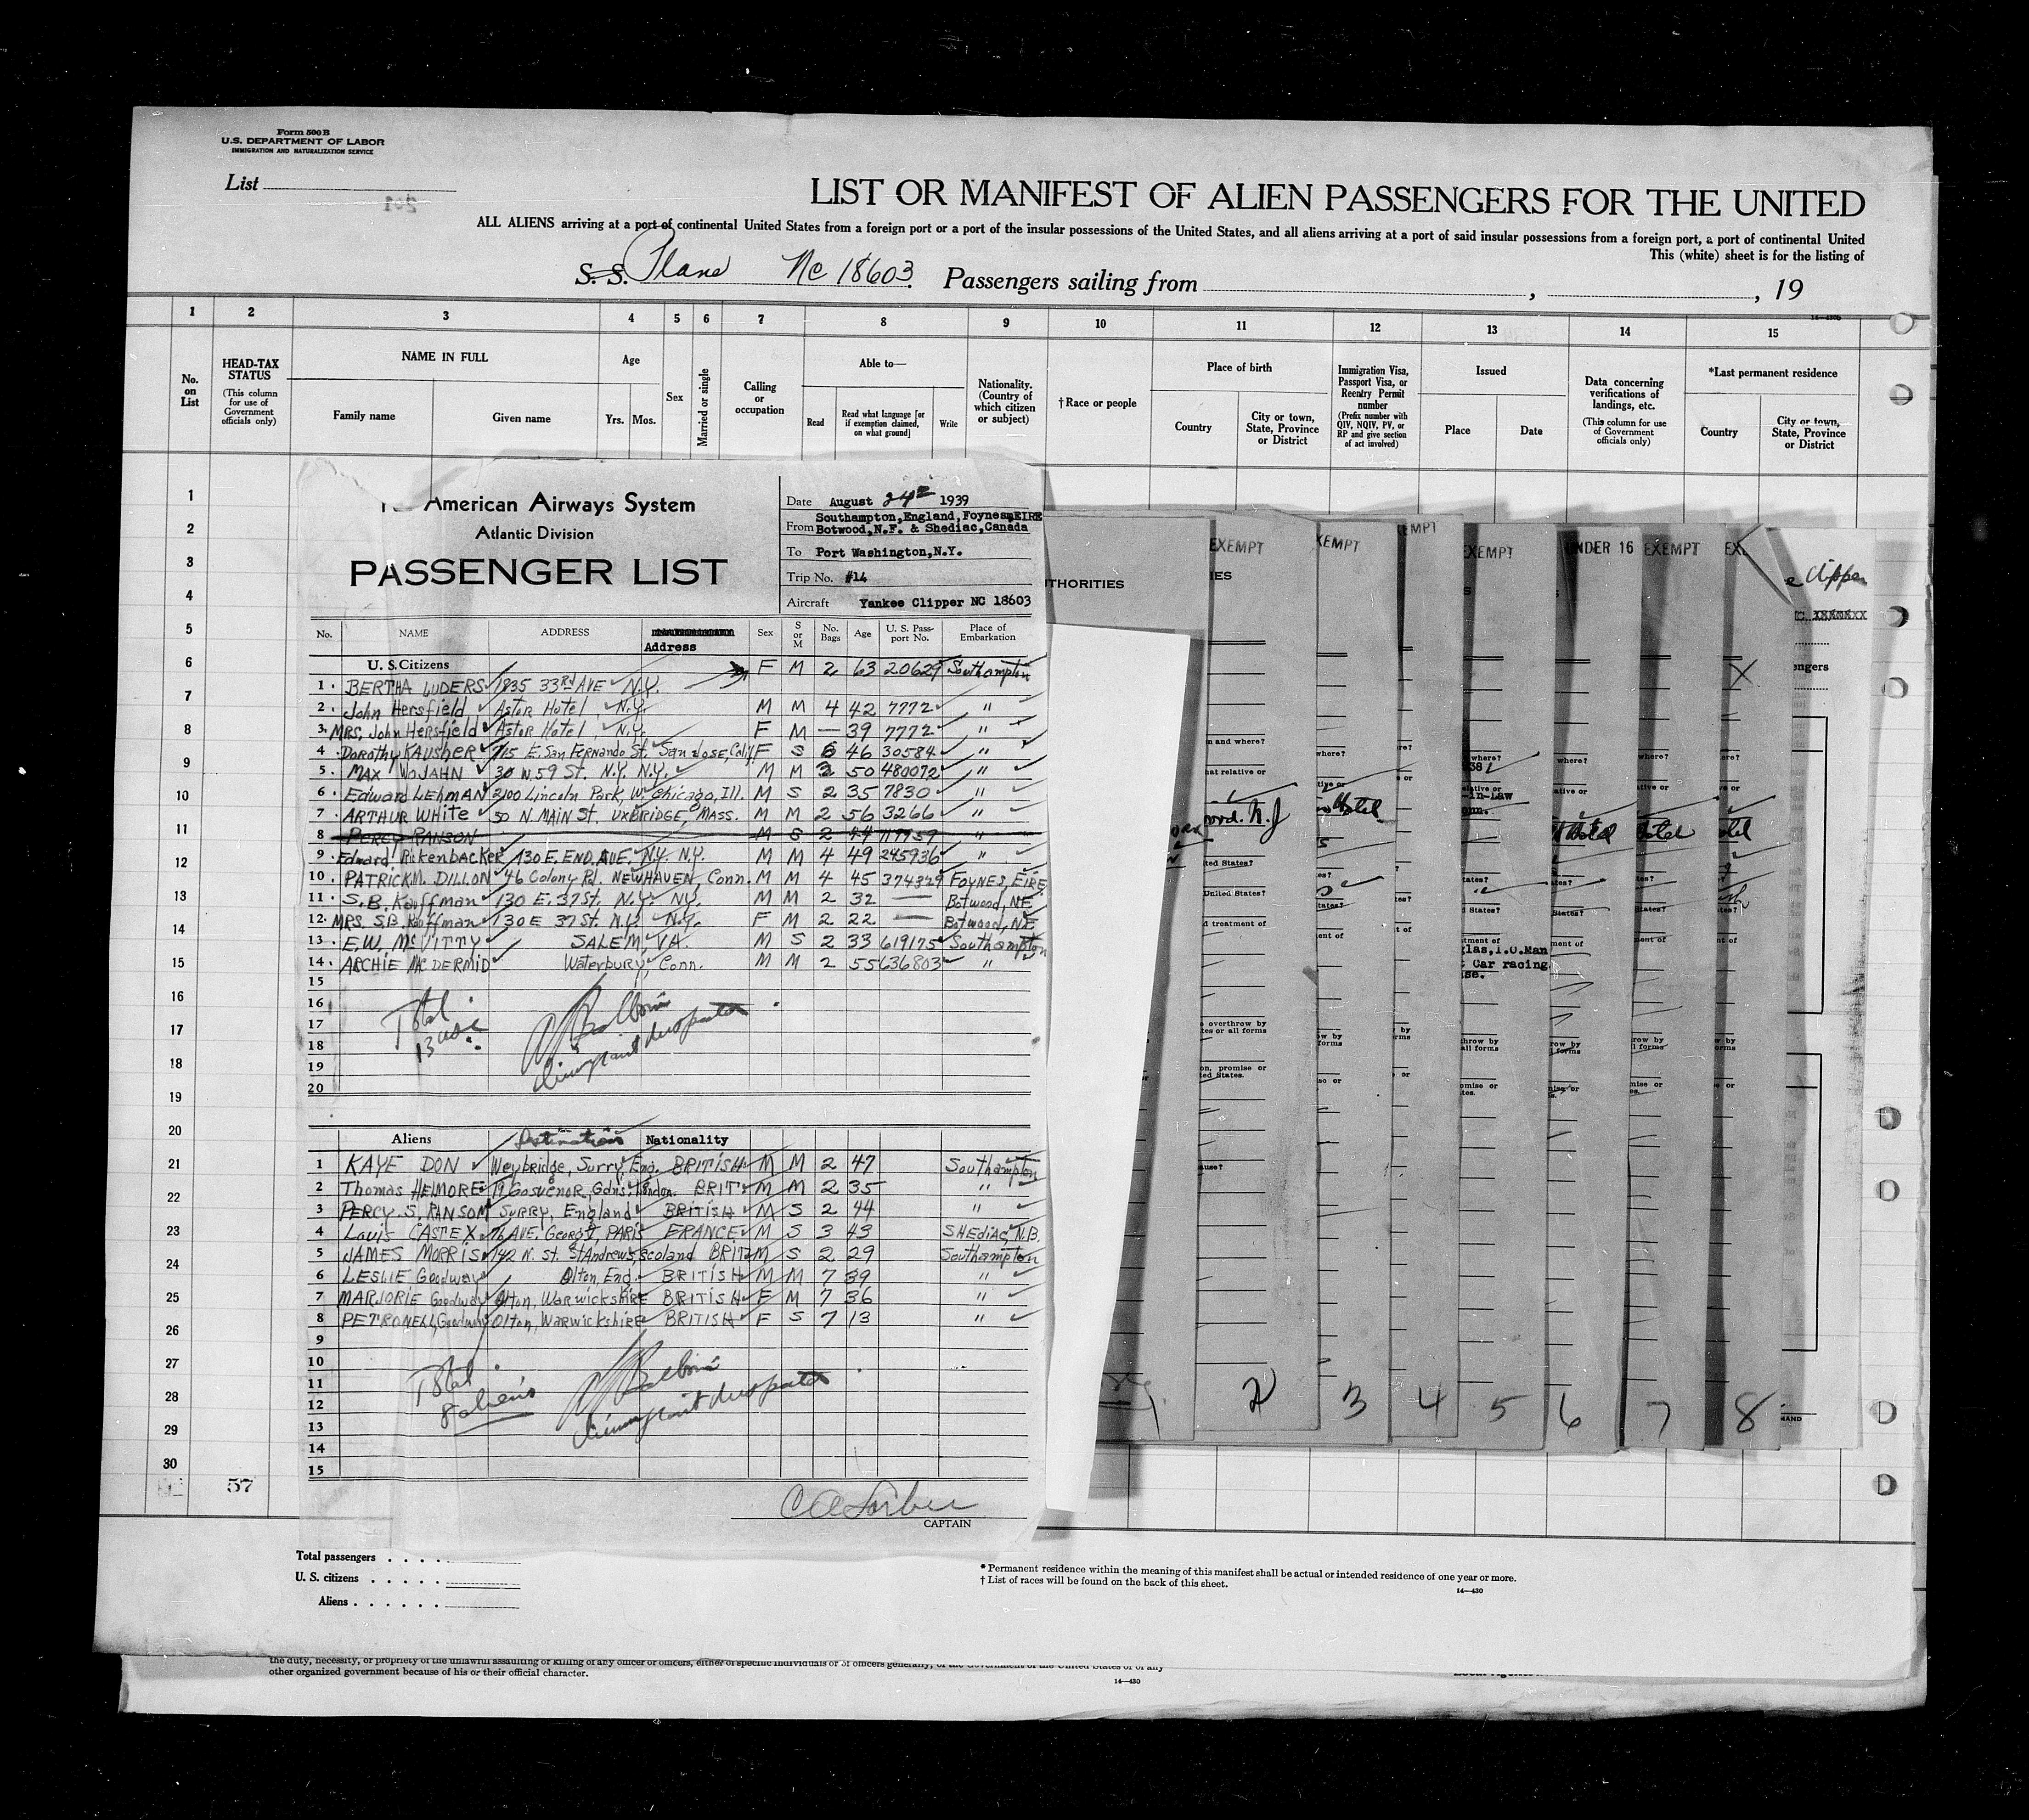 Form 500 B
U.S. DEPARTMENT OF LABOR
IMMIGRATION AND NATURALIZATION SERVICE
List
201
LIST OR MANIFEST OF ALIEN PASSENGERS FOR THE UNITED
ALL ALIENS arriving at a port of continental United States from a foreign port or a port of the insular possessions of the United States, and all aliens arriving at a port of said insular possessions from a foreign port, a port of continental United
This (white) sheet is for the listing of
S. S. Plane Nc 18603 Passengers sailing from , , 19
1 2 3 4 5 6 7 8 9 10 11 12 13 14 15
No. on List
HEAD-TAX STATUS
(This column for use of Government officials only)
NAME IN FULL
Family name Given name
Age
Yrs. Mos.
Sex
Married or single
Calling or occupation
Able to—
Read
Read what language [or if exemption claimed, on what ground]
Write
Nationality. (Country of which citizen or subject)
†Race or people
Place of birth
Country
City or town, State, Province or District
Immigration Visa, Passport Visa, or Reentry Permit number
(Prefix number with QIV, NQIV, PV, or RP and give section of act involved)
Issued
Place Date
Data concerning verifications of landings, etc.
(This column for use of Government officials only)
*Last permanent residence
Country
City or town, State, Province or District
1
2
3
4
5
6
7
8
9
10
11
12
13
14
15
16
17
18
19
20
21
22
23
24
25
26
27
28
29
30
57
American Airways System
Atlantic Division
PASSENGER LIST
Date August 24th 1939
From Southampton,England,Foynes,EIRE
Botwood,N.F. & Shediac,Canada
To Port Washington,N.Y.
Trip No. #14
Aircraft Yankee Clipper NC 18603
No. NAME ADDRESS Address Sex S or M No. Bags Age U. S. Passport No. Place of Embarkation
U. S. Citizens F M 2 63 20629 Southampton
1 BERTHA LUDERS 1835 33RD AVE N.Y.
2 John Hersfield Astor Hotel, N.Y. M M 4 42 7772 "
3 MRS. John Hersfield Astor Hotel, N.Y. F M — 39 7772 "
4 DOROTHY KAUSHER 715 E. San Fernando St. San Jose, Calif F S 6 46 30584 "
5 MAX WOJAHN 30 W 59 St. N.Y. N.Y. M M 3 50 480072 "
6 Edward LEHMAN 2100 Lincoln Park, W. Chicago, Ill. M S 2 35 7830 "
7 ARTHUR White 50 N. MAIN St. UXBRIDGE, MASS. M M 2 56 3266 "
8 PERCY RANSON M S 2 44 "
9 Edward Rickenbacker 130 E. END. AVE. N.Y. N.Y. M M 4 49 245936 "
10 PATRICK M. DILLON 46 Colony Rd. NEWHAVEN, Conn. M M 4 45 374329 FOYNES, EIRE
11 S.B. Kauffman 130 E. 37 St. N.Y. N.Y. M M 2 32 — Botwood, NF
12 MRS. S.B. Kauffman 130 E 37 St. N.Y. N.Y. F M 2 22 — Botwood, NF
13 E.W. McVITTY SALEM, VA. M S 2 33 619175 Southampton
14 ARCHIE MacDERMID Waterbury, Conn. M M 2 55 636803 "
15
16
17
18
19
20
Total 13 usc
Aliens Destination Nationality
1 KAYE DON Weybridge, Surry, Eng. BRITISH M M 2 47 Southampton
2 Thomas HELMORE 19 Gosvenor, Gdns. London. BRIT M M 2 35 "
3 PERCY. S. RANSOM SURRY, England BRITISH M S 2 44 "
4 Louis CASTEX 76 AVE. George V, PARIS FRANCE M S 3 43 SHEDIAC, N.B.
5 JAMES MORRIS 142 N. St. St Andrews, Scoland BRIT M S 2 29 Southampton
6 LESLIE Goodway Olton, Eng. BRITISH M M 7 39 "
7 MARJORIE Goodway Olton, Warwickshire BRITISH F M 7 36 "
8 PETRONELL, Goodway Olton, Warwickshire BRITISH F S 7 13 "
9
10
11
12
13
14
15
Total 8 aliens
CAPTAIN
THORITIES
EXEMPT
EXEMPT
EMPT
EXEMPT
UNDER 16
EXEMPT
EX
Clipper
engers
2 3 4 5 6 7 8
Total passengers
U. S. citizens
Aliens
* Permanent residence within the meaning of this manifest shall be actual or intended residence of one year or more.
† List of races will be found on the back of this sheet.
14—430
the duty, necessity, or propriety of the unlawful assaulting or killing of any officer or officers, either of specific individuals or of officers generally, of the Government of the United States or of any
other organized government because of his or their official character.
14—430